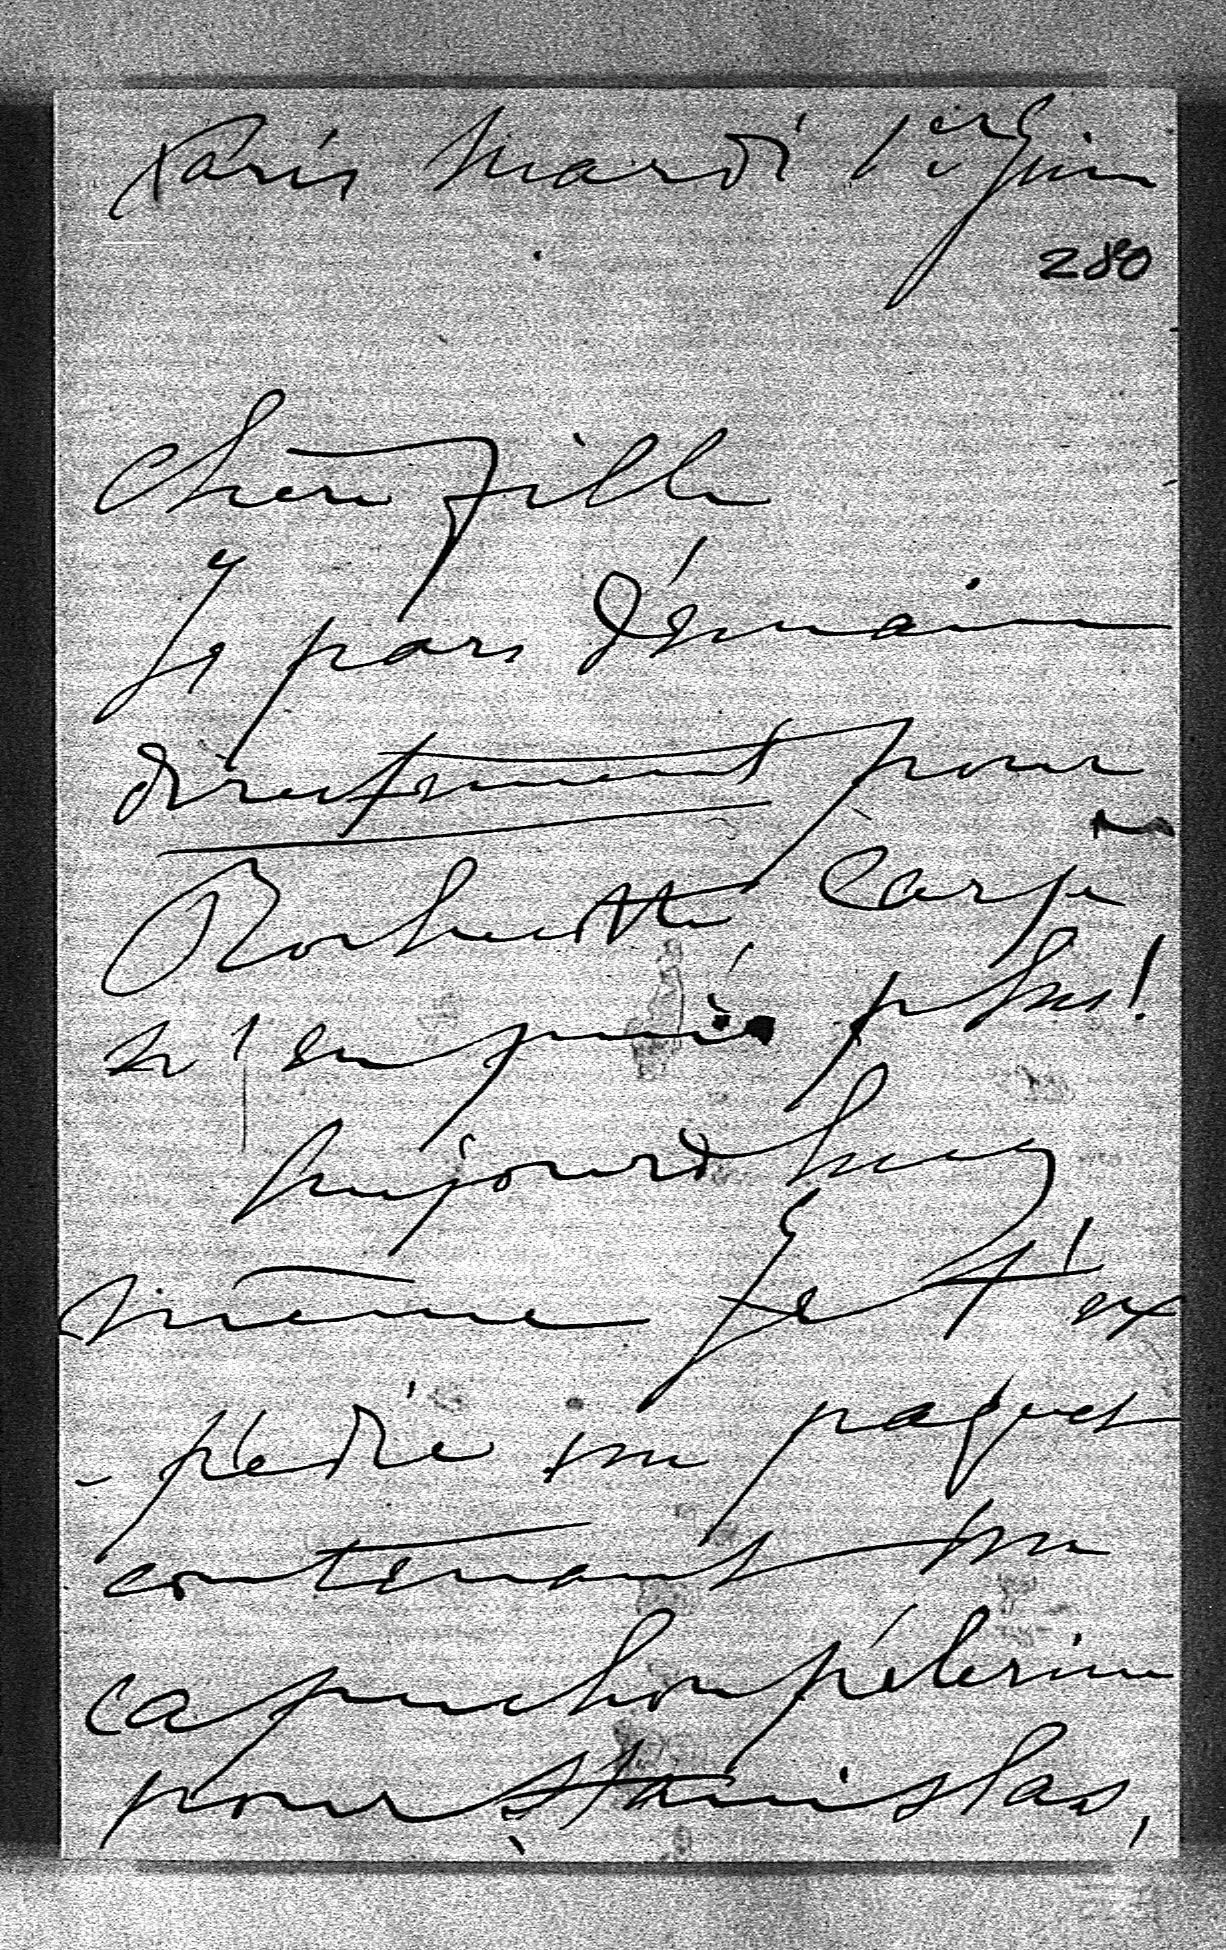 Paris Mardi 1er Juin
280
Chère fille
Je pars démain
directement pour
Rochecotte car je
n'en puis plus!
Aujourd'huy
même Je t'ex
-pédie un paquet
contenant un
capuchon pélerine
pour Stanislas,